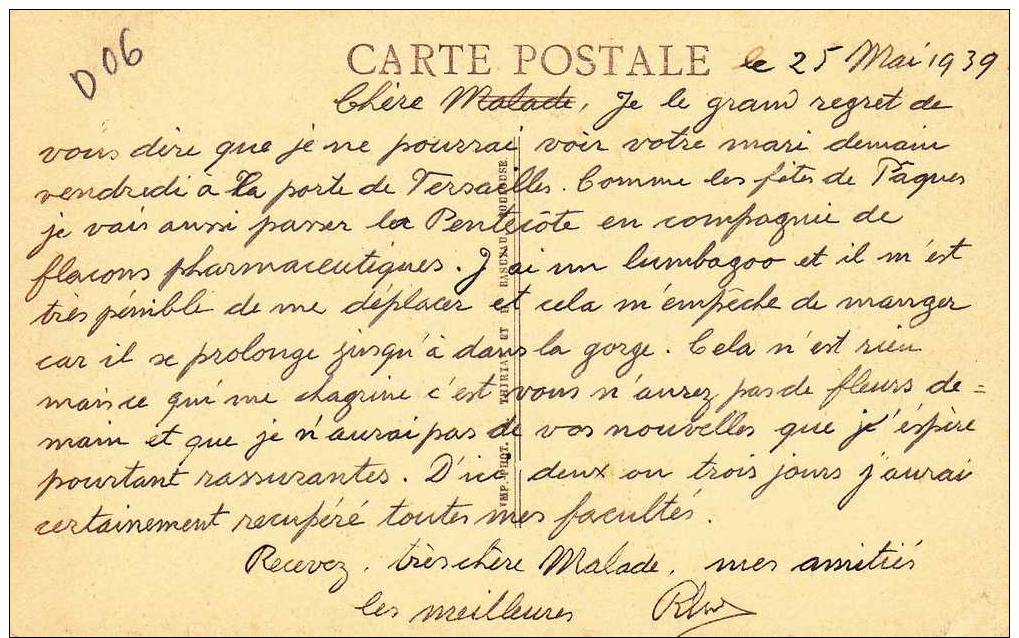 D06
CARTE POSTALE le 25 Mai 1939
Chère Malade, Je le grand regret de
vous dire que je ne pourrai voir votre mari demain
vendredi à la porte de Versailles. Comme les fêtes de Pâques
je vais aussi passer la Pentecôte en compagnie de
flacons pharmaceutiques. J'ai un lumbagoo et il m'est
très pénible de me déplacer et cela m'empêche de manger
car il se prolonge jusqu'à dans la gorge. Cela n'est rien
mais ce qui me chagrine c'est vous n'aurez pas de fleurs de=
main et que je n'aurai pas de vos nouvelles que j'éspère
pourtant rassurantes. D'ici deux ou trois jours j'aurai
certainement recupéré toutes mes facultés.
Recevez, très chère Malade, mes amitiés
les meilleures
IMP. PHOT. THIRIAT ET BASUYAU, TOULOUSE